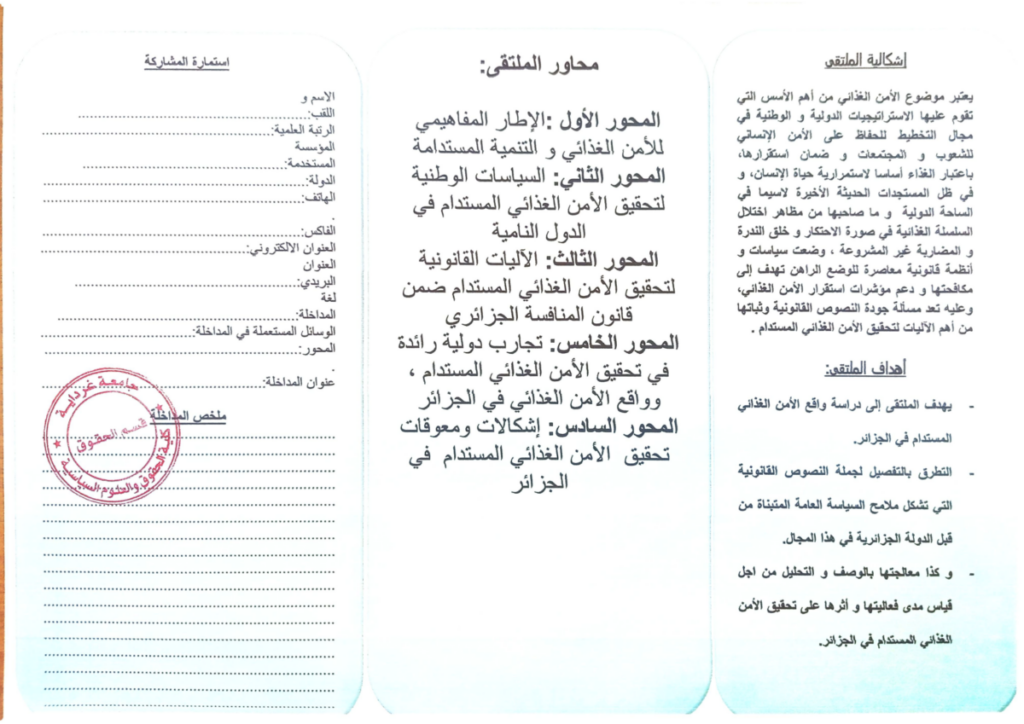 إشكالية الملتقى
يعتبر موضوع الأمن الغذائي من أهم الأسس التي
تقوم عليها الاستراتيجيات الدولية و الوطنية في
مجال التخطيط للحفاظ على الأمن الإنساني
للشعوب و المجتمعات و ضمان استقرارها،
باعتبار الغذاء أساسا لاستمرارية حياة الإنسان، و
في ظل المستجدات الحديثة الأخيرة لاسيما في
الساحة الدولية و ما صاحبها من مظاهر اختلال
السلسلة الغذائية في صورة الاحتكار و خلق الندرة
و المضاربة غير المشروعة ، وضعت سياسات و
أنظمة قانونية معاصرة للوضع الراهن تهدف إلى
مكافحتها و دعم مؤشرات استقرار الأمن الغذائي،
وعليه تعد مسألة جودة النصوص القانونية وثباتها
من أهم الآليات لتحقيق الأمن الغذائي المستدام .
أهداف الملتقى:
- يهدف الملتقى إلى دراسة واقع الأمن الغذائي
المستدام في الجزائر.
- التطرق بالتفصيل لجملة النصوص القانونية
التي تشكل ملامح السياسة العامة المتبناة من
قبل الدولة الجزائرية في هذا المجال.
- و كذا معالجتها بالوصف و التحليل من اجل
قياس مدى فعاليتها و أثرها على تحقيق الأمن
الغذائي المستدام في الجزائر.
محاور الملتقى:
المحور الأول :الإطار المفاهيمي
للأمن الغذائي و التنمية المستدامة
المحور الثاني: السياسات الوطنية
لتحقيق الأمن الغذائي المستدام في
الدول النامية
المحور الثالث: الآليات القانونية
لتحقيق الأمن الغذائي المستدام ضمن
قانون المنافسة الجزائري
المحور الخامس: تجارب دولية رائدة
في تحقيق الأمن الغذائي المستدام ،
وواقع الأمن الغذائي في الجزائر
المحور السادس: إشكالات ومعوقات
تحقيق الأمن الغذائي المستدام في
الجزائر
استمارة المشاركة
الاسم و
اللقب:
الرتبة العلمية:
المؤسسة
المستخدمة:
الدولة:
الهاتف:
.
الفاكس:
العنوان الالكتروني:
العنوان
البريدي:
لغة
المداخلة:
الوسائل المستعملة في المداخلة:
المحور:
.
عنوان المداخلة:
ملخص المداخلة
جامعة غرداية
قسم الحقوق
كلية الحقوق والعلوم السياسية